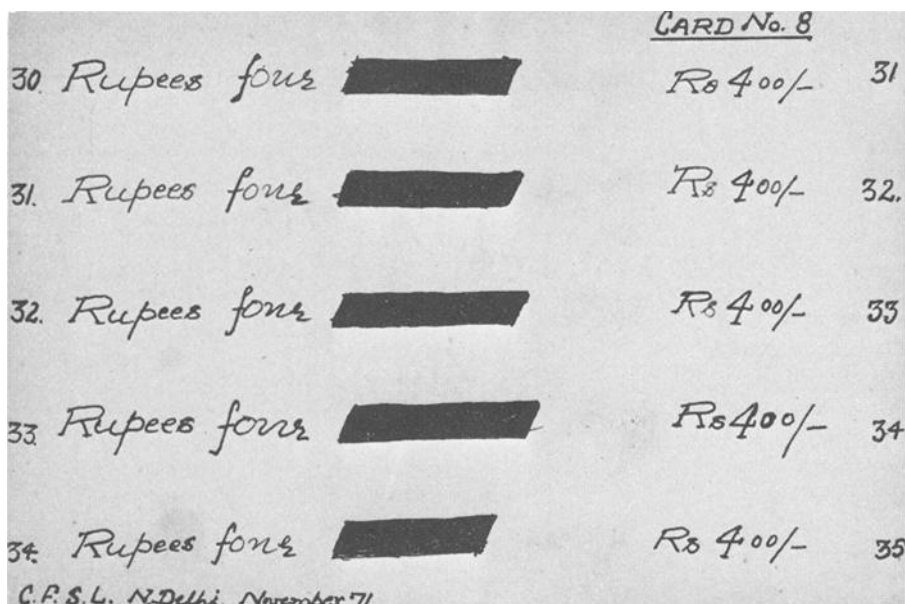 CARD No. 8
30. Rupees four Rs 400/- 31
31. Rupees four Rs 400/- 32.
32. Rupees four Rs 400/- 33
33. Rupees four Rs 400/- 34
34. Rupees four Rs 400/- 35
C.F.S.L. N.Delhi November 71